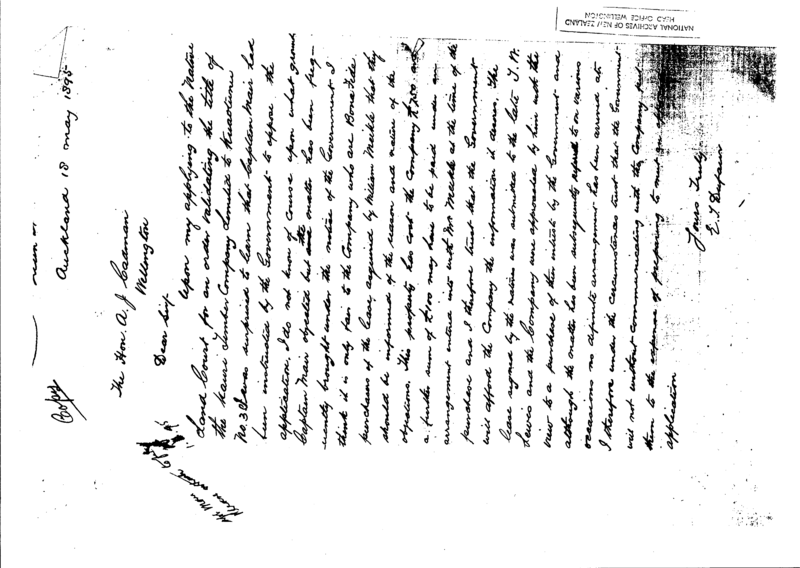 NATIONAL ARCHIVES OF NEW ZEALAND
HEAD OFFICE WELLINGTON
Copy
Auckland 18 May 1895
The Hon. A. J. Cadman
Wellington
Dear Sir,
Upon my applying to the Native
Land Court for an order validating the title of
the Kauri Timber Company Limited to
No. 3 I was surprised to learn that Captain Mair had
been instructed by the Government to oppose the
application. I do not know of course upon what ground
Captain Mair objected but the matter has been freq-
uently brought under the notice of the Government. I
think it is only fair to the Company who are Bona Fide
purchasers of the lease acquired by William Meikle that they
should be informed of the reason and nature of the
objections. This property has cost the Company and
a further sum of may have to be paid under an
arrangement entered into with Mr Meikle at the time of the
purchase and I therefore trust that the Government
will afford the Company the information it desires. The
lease signed by the natives was submitted to the late T. W.
Lewis and the Company were approached by him with the
view to a purchase of their interest by the Government and
although the matter has been subsequently referred to on various
occasions no definite arrangement has been arrived at.
I therefore under the circumstances trust that the Government
will not without communicating with the Company put
them to the expense of preparing to meet an
application
Yours truly
E. T. Dufaur